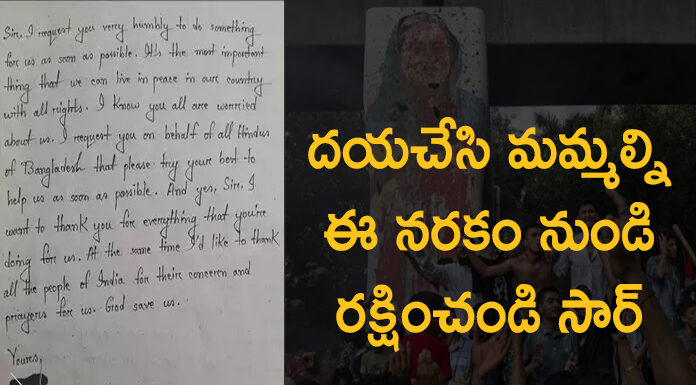 Sir, I request you very humbly to do something
for us as soon as possible. It's the most important
thing that we can live in peace in our country
with all rights. I know you all are worried
about us. I request you on behalf of all Hindus
of Bangladesh that please try your best to
help us as soon as possible. And yes, Sir, I
want to thank you for everything that you're
doing for us. At the same time I'd like to thank
all the people of India for their concern and
prayers for us. God save us.
Yours,
దయచేసి మమ్మల్ని
ఈ నరకం నుండి
రక్షించండి సార్